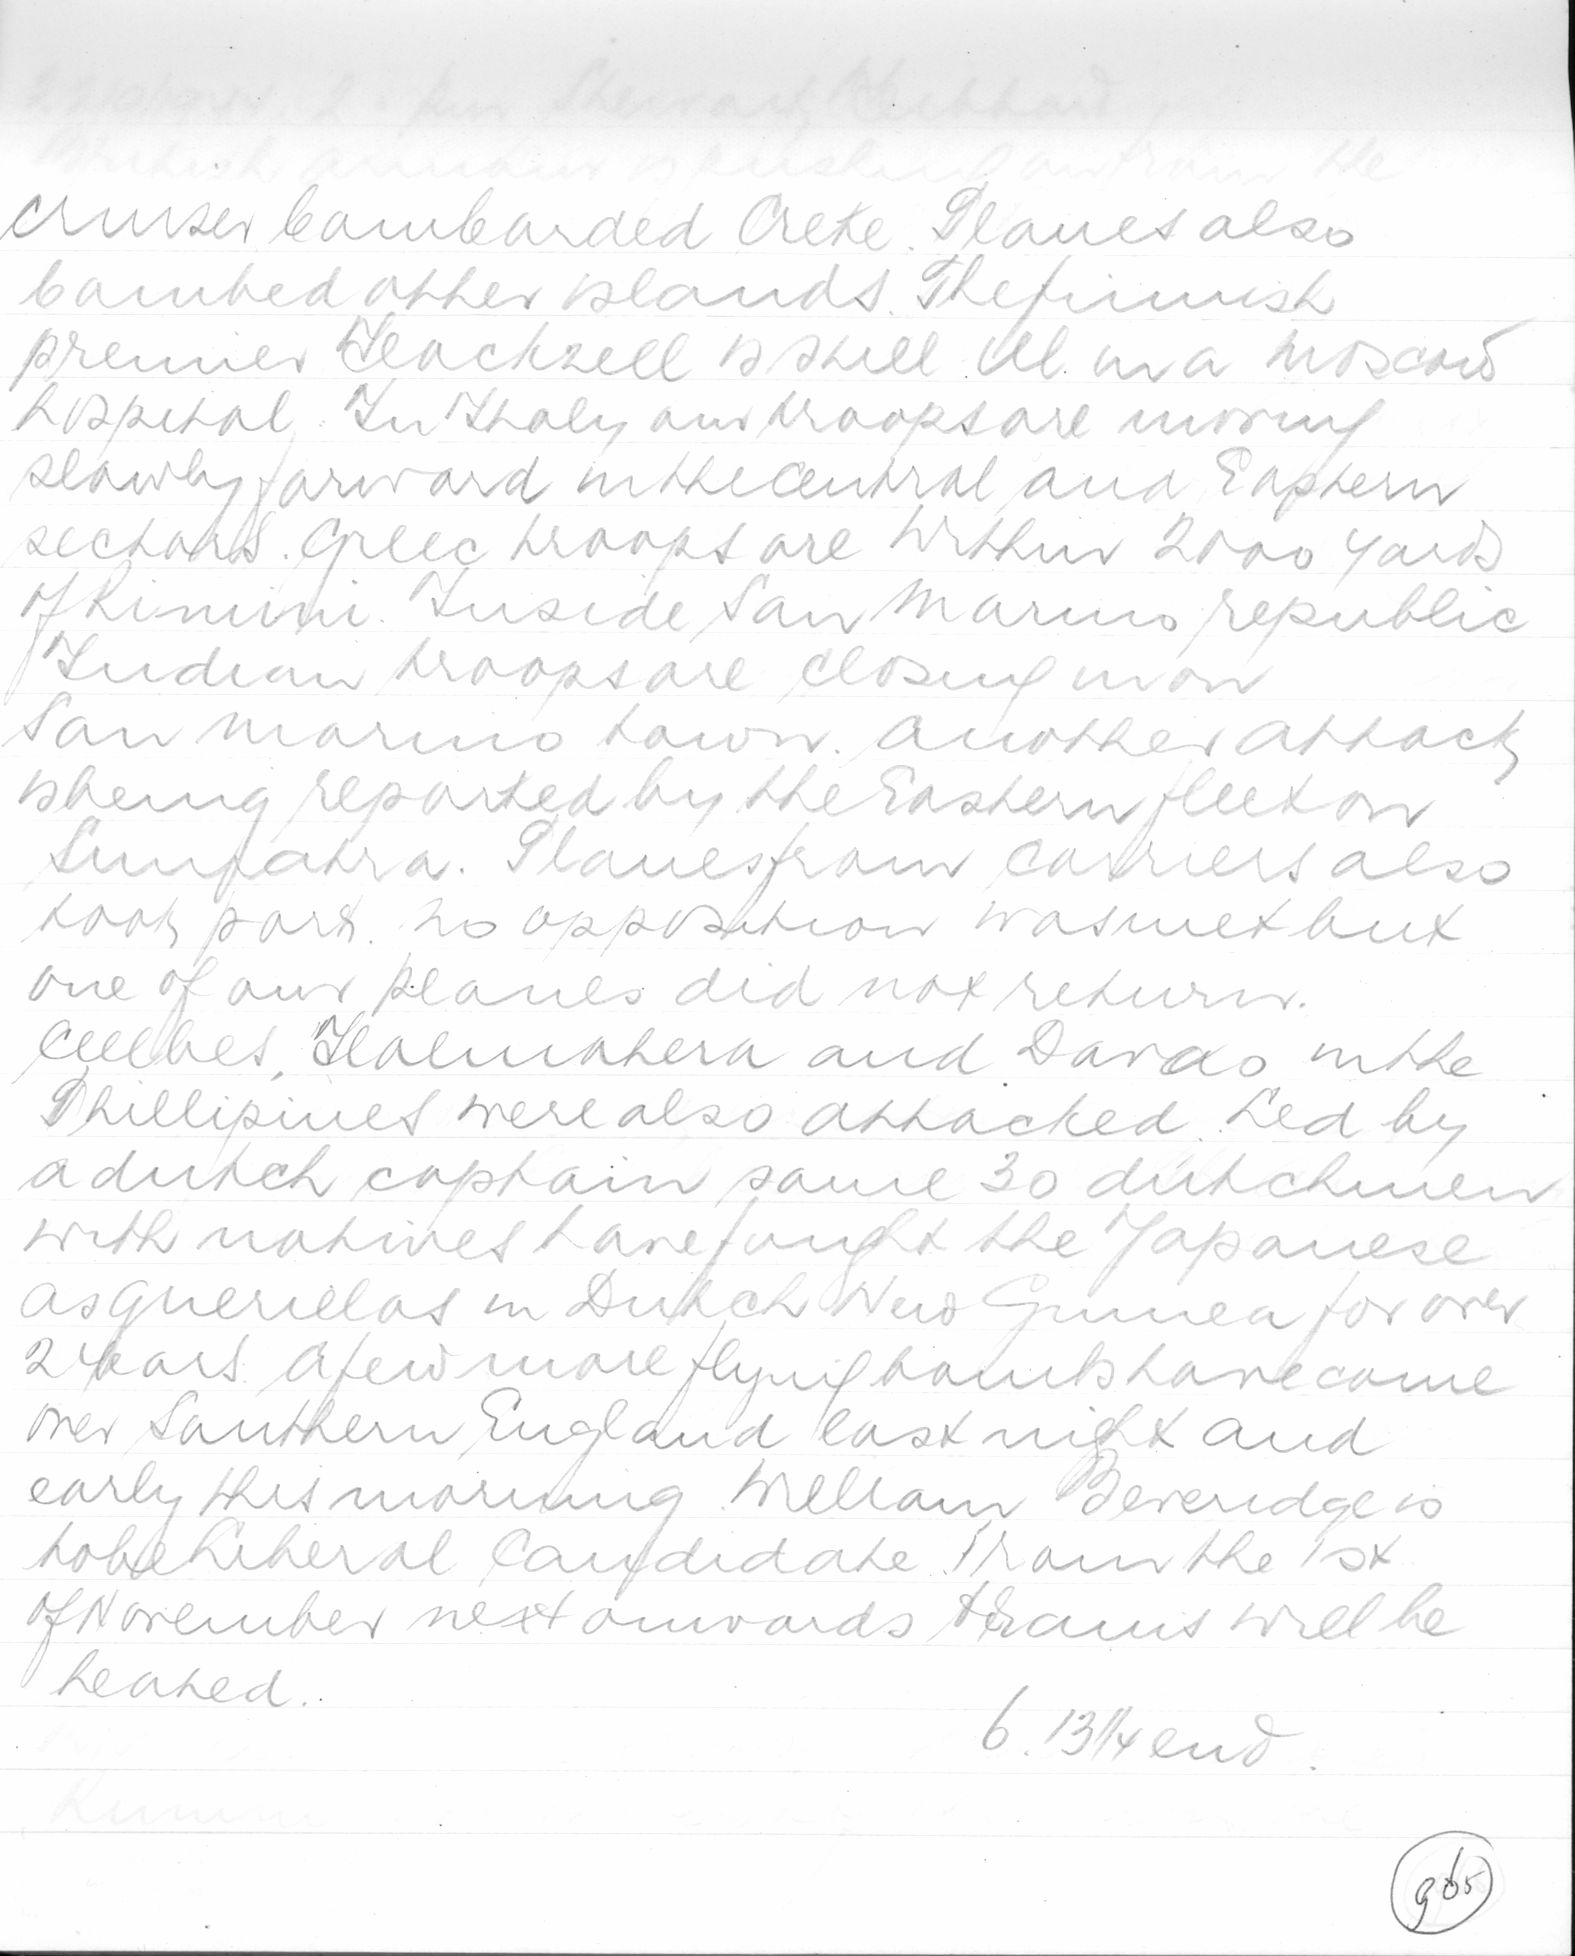 cruiser bombarded Crete. Planes also
bombed other islands. The finnish
premier Hackzell is still ill in a Moscow
hospital. In Italy our troops are moving
slowly forward in the central and Eastern
sectors. Greec troops are within 2000 yards
of Rimini. Inside San Marino republic
Indian troops are closing in on
San Marino town. Another attack
is being reported by the Eastern fleet on
Sumatra. Planes from carriers also
took part. No opposition was met but
one of our planes did not return.
Celebes, Halmahera and Davao in the
Phillipines were also attacked. Led by
a dutch captain some 30 dutchmen
with natives have fought the Japanese
as guerillas in Dutch New Guinea for over
2 years. A few more flying bombs have come
over Southern England last night and
early this morning. William Beveridge is
to be Liberal Candidate. From the 1st
of November next onwards trams will be
heated.
6.13 1/4 end.
965